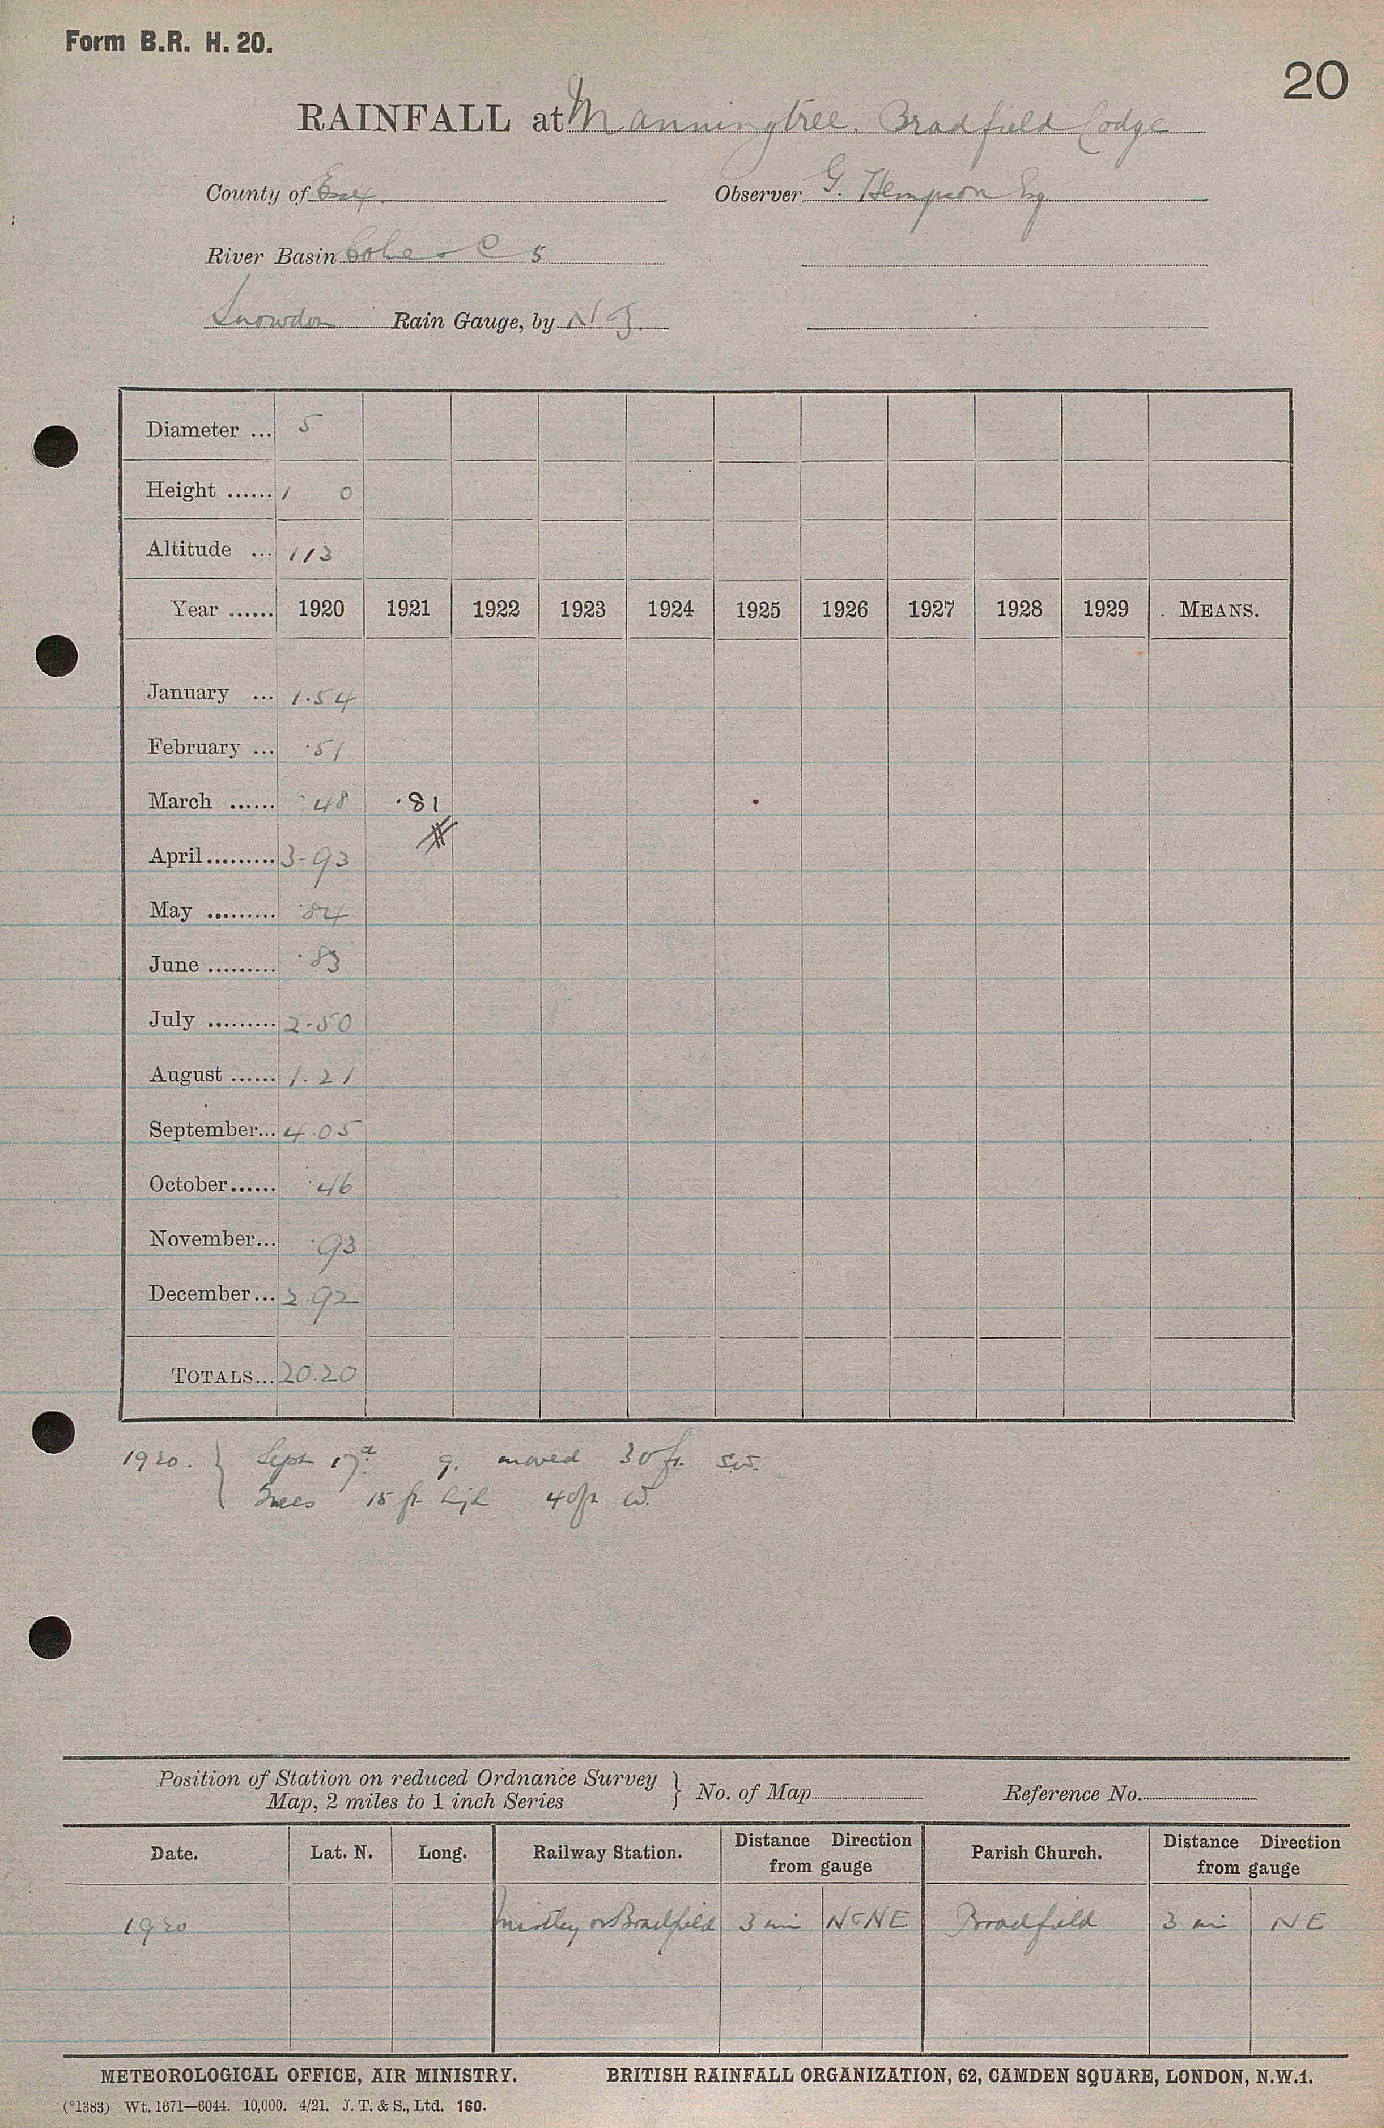 Form B.R. H. 20.
20
RAINFALL at Manningtree. Bradfield Lodge
County of Essex. Observer G. Hempson Esq
River Basin Colne C 5
Snowdon Rain Gauge, by N Z.
Diameter ... 5
Height ...... 1 0
Altitude ... 113
Year ...... 1920 1921 1922 1923 1924 1925 1926 1927 1928 1929 MEANS.
January ... 1.54
February ... .51
March ...... .48 .81
April ......... 3.93
May ......... .84
June ......... .83
July ......... 2.50
August ...... 1.21
September... 4.05
October...... .46
November... .93
December... 2.92
TOTALS... 20.20
1920. { Sept 17th g. moved 30 ft. S.W.
Trees 15 ft high 40ft W.
Position of Station on reduced Ordnance Survey
Map, 2 miles to 1 inch Series } No. of Map Reference No.
Date. Lat. N. Long. Railway Station. Distance Direction from gauge Parish Church. Distance Direction from gauge
1920 Mistley or Bradfield 3 mi Bradfield 3 mi NE
METEOROLOGICAL OFFICE, AIR MINISTRY. BRITISH RAINFALL ORGANIZATION, 62, CAMDEN SQUARE, LONDON, N.W.1.
(*1383) Wt. 1671—6044. 10,000. 4/21. J. T. & S., Ltd. 160.